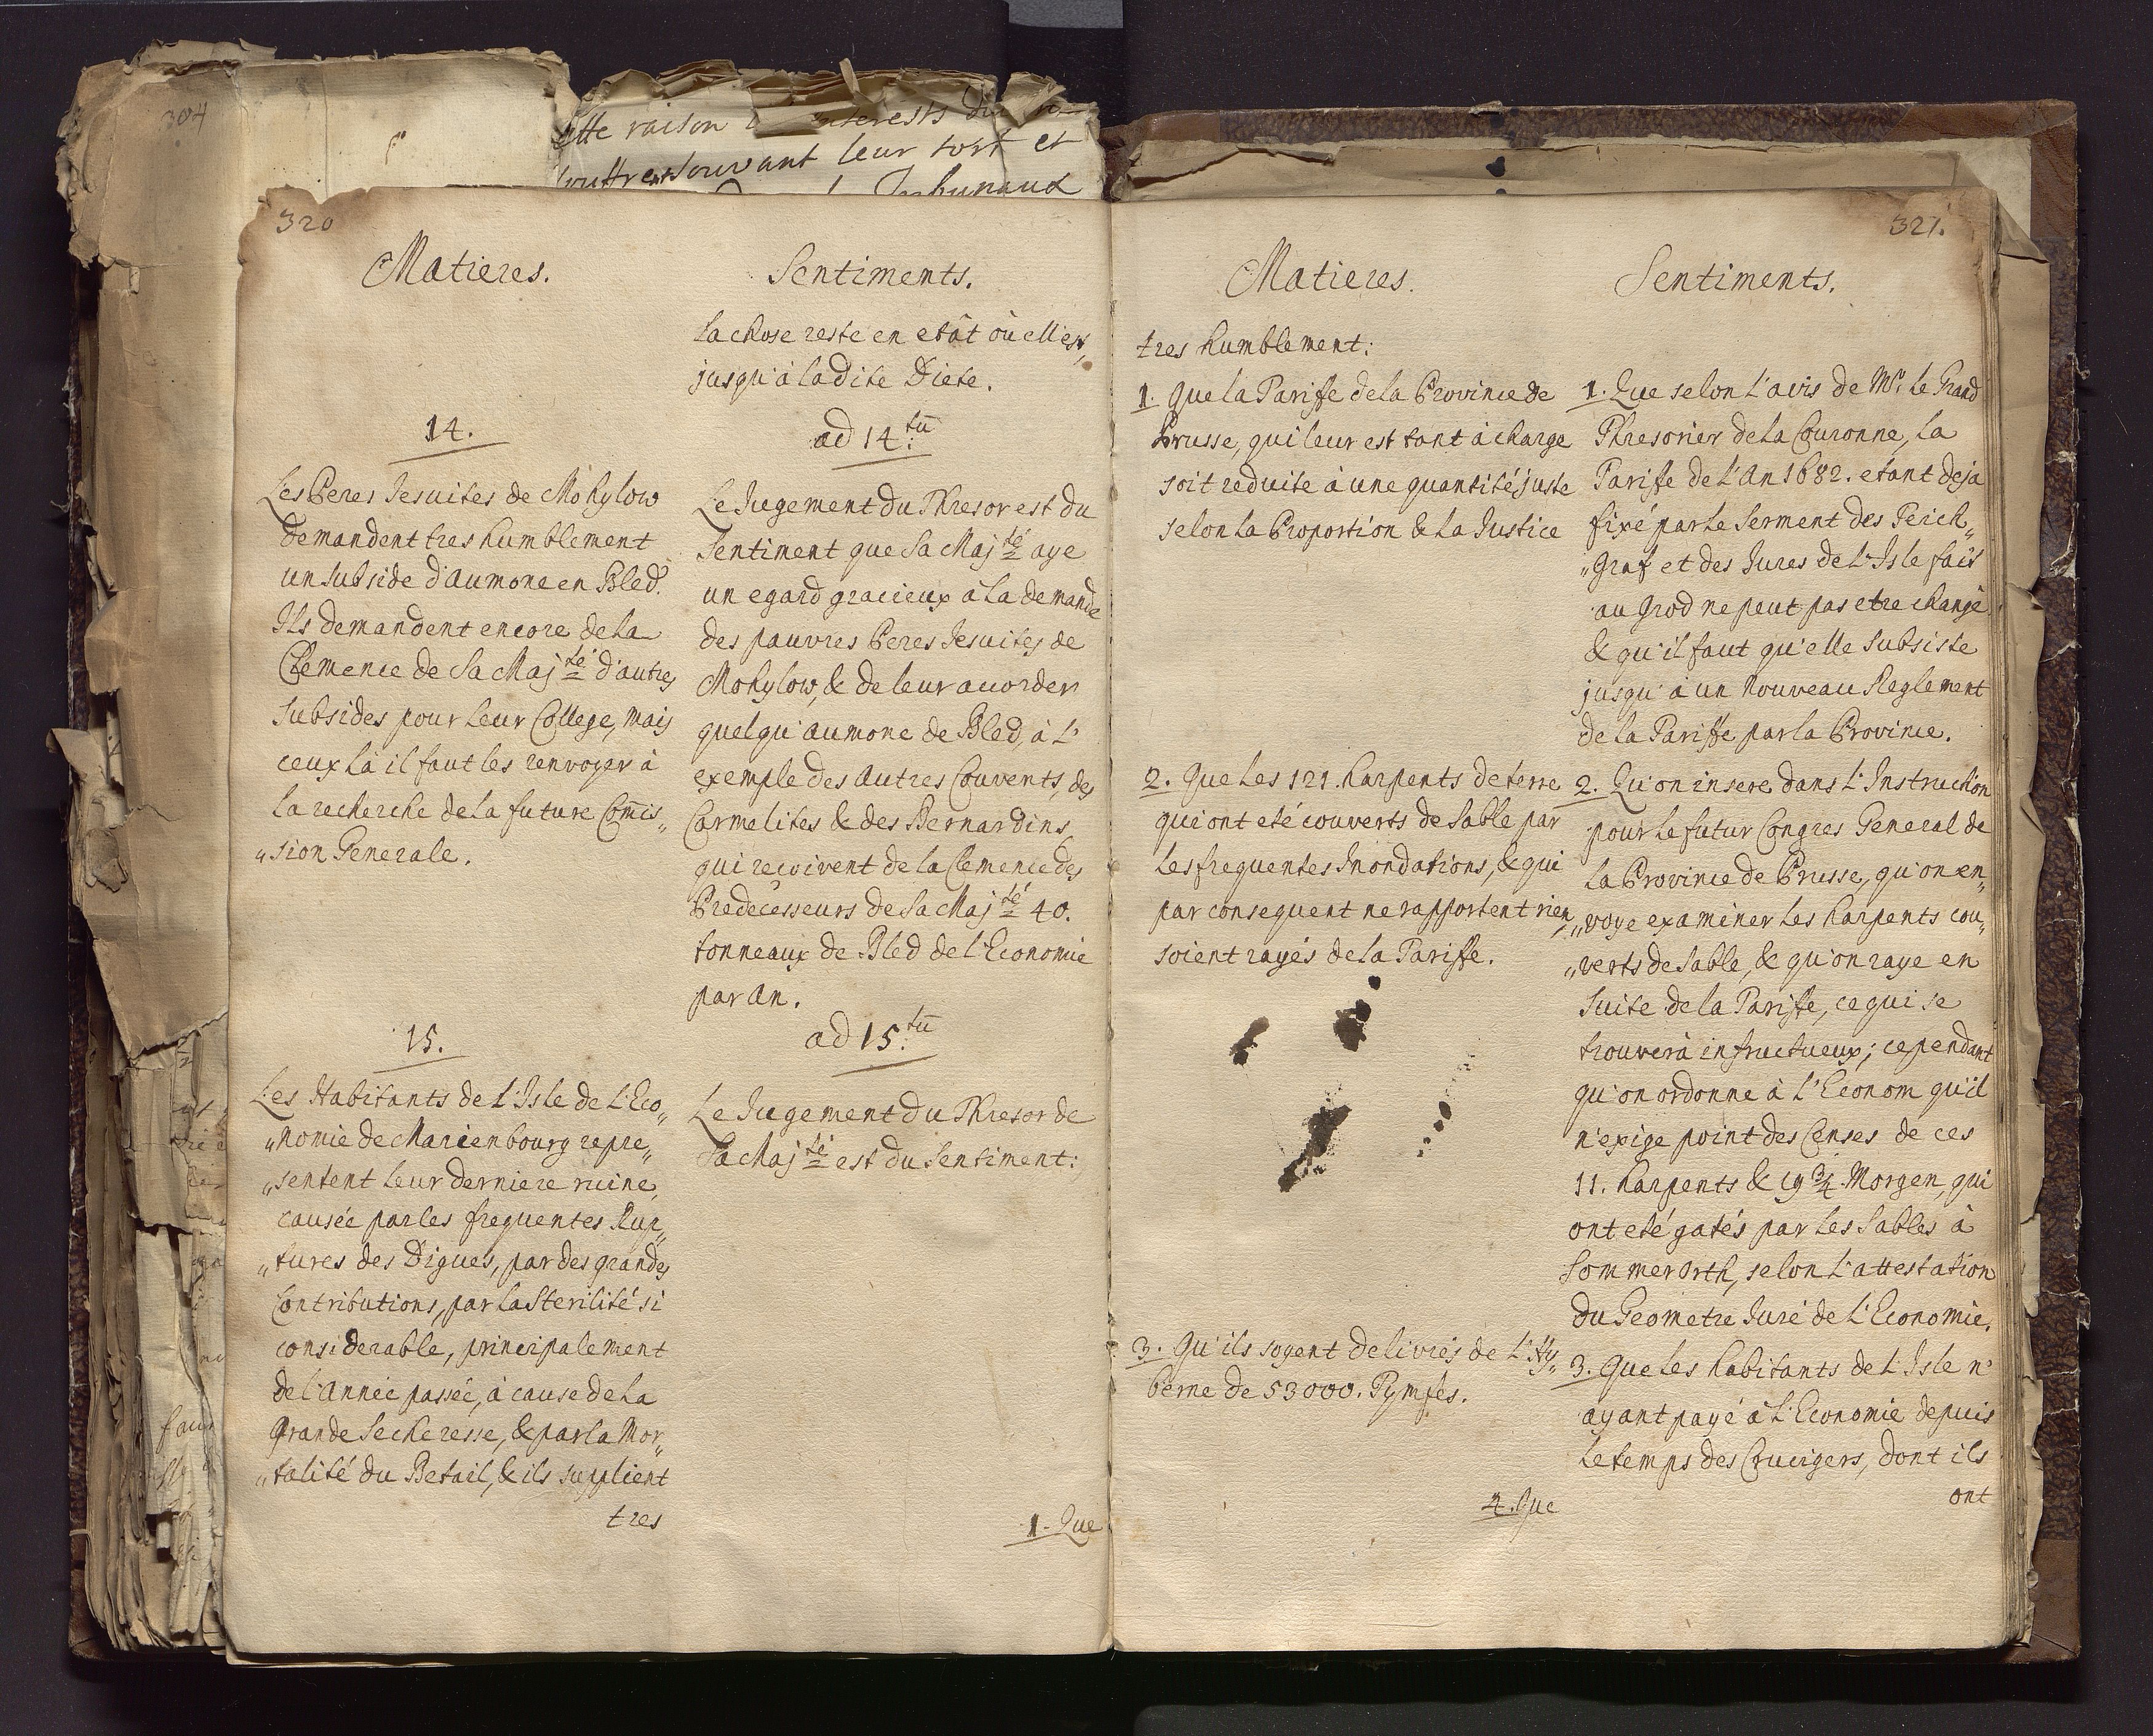 304
raison
souvant leur tort et
320
Matieres.
14.
Les Peres Jesuites de Mohylow
demandent tres humblement
un Subside d'aumone en Bled.
Ils demandent encore de la
Clemence de Sa Maj.té d'autres
Subsides pour leur College, mais
ceux là il faut les renvoyer à
la recherche de la future Com̄is„
„sion Generale.
15.
Les Habitants de L'Isle de L'Eco„
„nomie de Marienbourg repre„
„sentent leur derniere ruine,
causée par les frequentes Rup„
„tures des Digues, par des grandes
Contributions, par la Sterilité si
considerable, principalement
de l'année passée, à cause de la
grande Secheresse, & par la Mor„
„talité du Betail, & ils supplient
tres
Sentiments.
la chose reste en etât où elle est,
jusqu'à la dite Diete.
ad 14.tū
Le Jugement du Thresor est du
Sentiment que Sa Maj.té aye
un egard gracieux à la demande
des pauvres Peres Jesuites de
Mohylow, & de leur accorder
quelqu'aumone de Bled, à L'
exemple des autres Couvents, des
Carmelites & des Bernardins,
qui recoivent de la Clemence des
Predecesseurs de Sa Maj.té 40.
tonneaux de Bled de l'Economie
par An.
ad 15.tū
Le Jugement du Thresor de
Sa Maj.té est du Sentiment:
1. Que
321.
Matieres.
tres humblement:
1. Que la Tariffe de la Province de
Prusse, qui leur est tant à charge
soit reduite à une quantité juste
selon la Proportion & la Justice
2. Que Les 121. harpents de terre
qui ont eté couverts de Sable par
les frequentes Inondations, & qui
par consequent ne rapportent rien,
soient rayés de la Tariffe.
3. Qu'ils soyent delivrés de L'Hy„
berne de 53000. Tymfes.
4. Que
Sentiments.
1. Que selon L'avis de Mr. Le Grand
Thresorier de la Couronne, la
Tariffe de L'An 1682. etant deja
fixé par le Serment des Teich„
„Graf et des Jures de L'Isle fait
au Grod ne peut pas etre changé
& qu'il faut qu'elle Subsiste
jusqu'à un nouveau Reglement
de la Tariffe par la Province.
2. Qu'on insere dans L'Instruction
pour le futur Congres General de
La Province de Prusse, qu'on en„
„voye examiner Les harpents cou„
„verts de Sable, & qu'on raye en
Suite de la Tariffe, ce qui se
trouverà infructueux; cependant
qu'on ordonne à L'Econom qu'il
n'exige point des Censes de ces
11. harpents & 19 3/4 Morgen, qui
ont eté gatés par les Sables à
Sommerorth, selon L'attestation
du Geometre Juré de L'Economie.
3. Que les habitants de L'Isle n'
ayant payé à L'Economie depuis
le temps des Crucigers, dont ils
ont